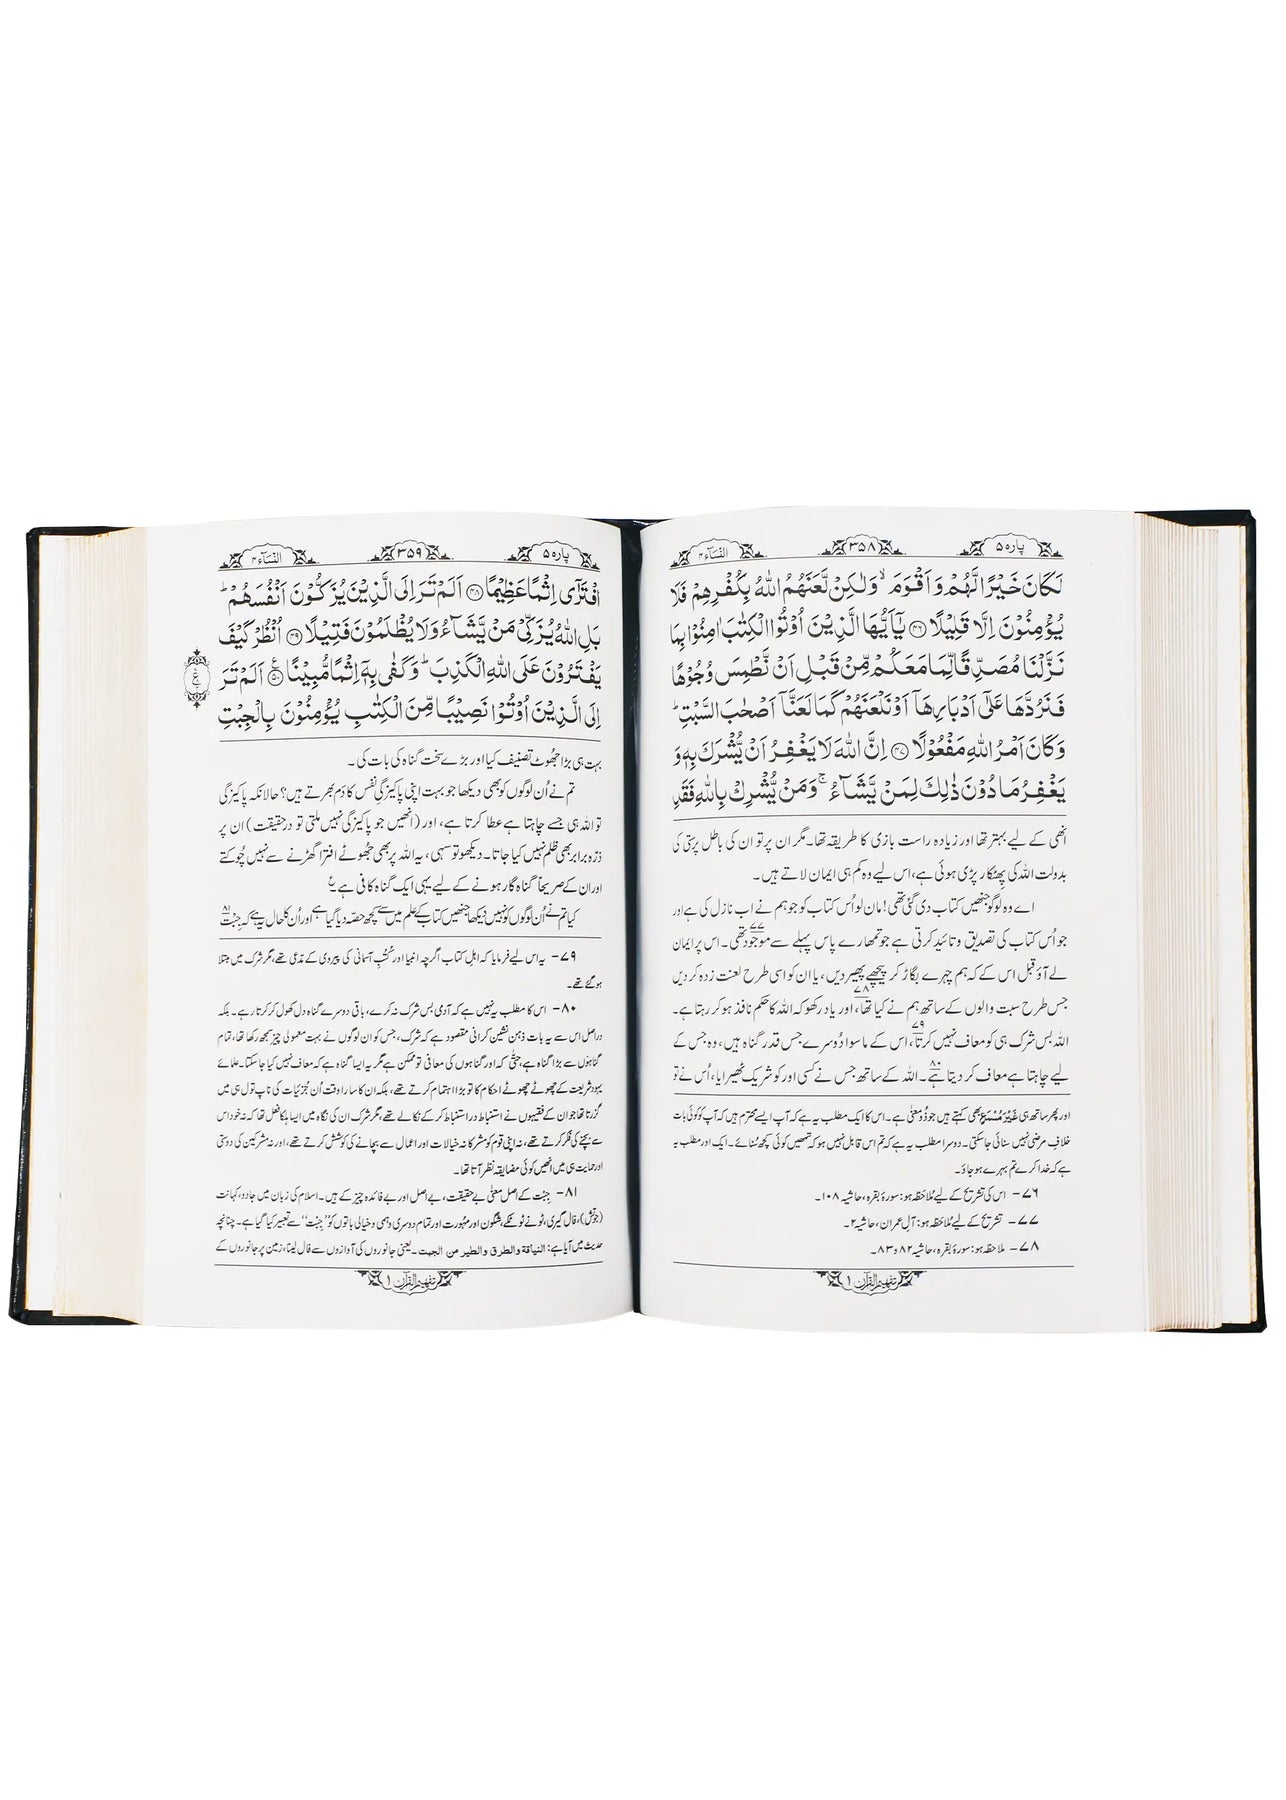 پارہ ۵ ۳۵۸ النسآء ۴
لَكَانَ خَيْرًا لَّهُمْ وَاَقْوَمَ ۙ وَلٰكِنْ لَّعَنَهُمُ اللّٰهُ بِكُفْرِهِمْ فَلَا
يُؤْمِنُوْنَ اِلَّا قَلِيْلًا ۝۴۶ يٰۤاَيُّهَا الَّذِيْنَ اُوْتُوا الْكِتٰبَ اٰمِنُوْا بِمَا
نَزَّلْنَا مُصَدِّقًا لِّمَا مَعَكُمْ مِّنْ قَبْلِ اَنْ نَّطْمِسَ وُجُوْهًا
فَنَرُدَّهَا عَلٰۤى اَدْبَارِهَاۤ اَوْ نَلْعَنَهُمْ كَمَا لَعَنَّاۤ اَصْحٰبَ السَّبْتِ ؕ
وَكَانَ اَمْرُ اللّٰهِ مَفْعُوْلًا ۝۴۷ اِنَّ اللّٰهَ لَا يَغْفِرُ اَنْ يُّشْرَكَ بِهٖ وَ
يَغْفِرُ مَا دُوْنَ ذٰلِكَ لِمَنْ يَّشَآءُ ۚ وَمَنْ يُّشْرِكْ بِاللّٰهِ فَقَدِ
انھی کے لیے بہتر تھا اور زیادہ راست بازی کا طریقہ تھا۔ مگر ان پر تو ان کی باطل پرستی کی
بدولت اللہ کی پھٹکار پڑی ہوئی ہے، اس لیے وہ کم ہی ایمان لاتے ہیں۔
اے وہ لوگو جنھیں کتاب دی گئی تھی! مان لو اُس کتاب کو جو ہم نے اب نازل کی ہے اور
جو اُس کتاب کی تصدیق و تائید کرتی ہے جو تمھارے پاس پہلے سے موجود تھی۔۷۷ اس پر ایمان
لے آؤ قبل اس کے کہ ہم چہرے بگاڑ کر پیچھے پھیر دیں، یا ان کو اسی طرح لعنت زدہ کر دیں
جس طرح سبت والوں کے ساتھ ہم نے کیا تھا،۷۸ اور یاد رکھو کہ اللہ کا حکم نافذ ہو کر رہتا ہے۔
اللہ بس شرک ہی کو معاف نہیں کرتا،۷۹ اس کے ماسوا دُوسرے جس قدر گناہ ہیں، وہ جس کے
لیے چاہتا ہے معاف کر دیتا ہے۔۸۰ اللہ کے ساتھ جس نے کسی اور کو شریک ٹھیرایا، اُس نے تو
اور پھر ساتھ ہی غَیْرَ مُسْمَعٍ بھی کہتے ہیں جو ذُو معنٰی ہے۔ اس کا ایک مطلب یہ ہے کہ آپ ایسے محترم ہیں کہ آپ کو کوئی بات
خلافِ مرضی نہیں سنائی جا سکتی۔ دوسرا مطلب یہ ہے کہ تم اس قابل نہیں ہو کہ تمھیں کوئی کچھ سُنائے۔ ایک اور مطلب یہ
ہے کہ خدا کرے تم بہرے ہو جاؤ۔
۷۶- اس کی تشریح کے لیے مُلاحظہ ہو: سورۂ بقرہ، حاشیہ ۱۰۸۔
۷۷- تشریح کے لیے مُلاحظہ ہو: آلِ عمران، حاشیہ ۲۔
۷۸- ملاحظہ ہو: سورۂ بقرہ، حاشیہ ۸۲ و ۸۳۔
تفہیم القرآن ۱
پارہ ۵ ۳۵۹ النسآء ۴
افْتَرٰۤى اِثْمًا عَظِيْمًا ۝۴۸ اَلَمْ تَرَ اِلَى الَّذِيْنَ يُزَكُّوْنَ اَنْفُسَهُمْ ؕ
بَلِ اللّٰهُ يُزَكِّيْ مَنْ يَّشَآءُ وَلَا يُظْلَمُوْنَ فَتِيْلًا ۝۴۹ اُنْظُرْ كَيْفَ
يَفْتَرُوْنَ عَلَى اللّٰهِ الْكَذِبَ ؕ وَكَفٰى بِهٖۤ اِثْمًا مُّبِيْنًا ۝۵۰ ع اَلَمْ تَرَ
اِلَى الَّذِيْنَ اُوْتُوْا نَصِيْبًا مِّنَ الْكِتٰبِ يُؤْمِنُوْنَ بِالْجِبْتِ
بہت ہی بڑا جھُوٹ تصنیف کیا اور بڑے سخت گناہ کی بات کی۔
تم نے اُن لوگوں کو بھی دیکھا جو بہت اپنی پاکیزگیِ نفس کا دَم بھرتے ہیں؟ حالانکہ پاکیزگی
تو اللہ ہی جسے چاہتا ہے عطا کرتا ہے، اور (انھیں جو پاکیزگی نہیں ملتی تو درحقیقت) ان پر
ذرّہ برابر بھی ظلم نہیں کیا جاتا۔ دیکھو تو سہی، یہ اللہ پر بھی جھُوٹے افترا گھڑنے سے نہیں چُوکتے
اور ان کے صریحاً گناہ گار ہونے کے لیے یہی ایک گناہ کافی ہے ع
کیا تم نے اُن لوگوں کو نہیں دیکھا جنھیں کتاب کے علم میں سے کچھ حصّہ دیا گیا ہے اور اُن کا حال یہ ہے کہ جِبْت۸۱
۷۹- یہ اس لیے فرمایا کہ اہلِ کتاب اگرچہ انبیا اور کتُبِ آسمانی کی پیروی کے مدعی تھے، مگر شرک میں مبتلا
ہو گئے تھے۔
۸۰- اس کا مطلب یہ نہیں ہے کہ آدمی بس شرک نہ کرے، باقی دوسرے گناہ دل کھول کر کرتا رہے۔ بلکہ
دراصل اس سے یہ بات ذہن نشین کرانی مقصود ہے کہ شرک، جس کو ان لوگوں نے بہت معمولی چیز سمجھ رکھا تھا، تمام
گناہوں سے بڑا گناہ ہے، حتّٰی کہ اور گناہوں کی معافی تو ممکن ہے مگر یہ ایسا گناہ ہے کہ معاف نہیں کیا جا سکتا۔ علمائے
یہود شریعت کے چھوٹے چھوٹے احکام کا تو بڑا اہتمام کرتے تھے، بلکہ ان کا سارا وقت اُن جُزئیات کی ناپ تول ہی میں
گزرتا تھا جو ان کے فقیہوں نے استنباط در استنباط کر کے نکالے تھے، مگر شرک ان کی نگاہ میں ایسا ہلکا فعل تھا کہ نہ خود اس
سے بچنے کی فکر کرتے تھے، نہ اپنی قوم کو مشرکانہ خیالات اور اعمال سے بچانے کی کوشش کرتے تھے، اور نہ مشرکین کی دوستی
اور حمایت ہی میں انھیں کوئی مضایقہ نظر آتا تھا۔
۸۱- جِبْت کے اصل معنٰی بے حقیقت، بے اصل اور بے فائدہ چیز کے ہیں۔ اسلام کی زبان میں جادو، کہانت
(جوتش)، فال گیری، ٹونے ٹوٹکے، شگون اور مہُورت اور تمام دوسری وہمی و خیالی باتوں کو ”جِبْت“ سے تعبیر کیا گیا ہے۔ چنانچہ
حدیث میں آیا ہے: النیاقۃ والطرق والطیر من الجبت۔ یعنی جانوروں کی آوازوں سے فال لینا، زمین پر جانوروں کے
تفہیم القرآن ۱